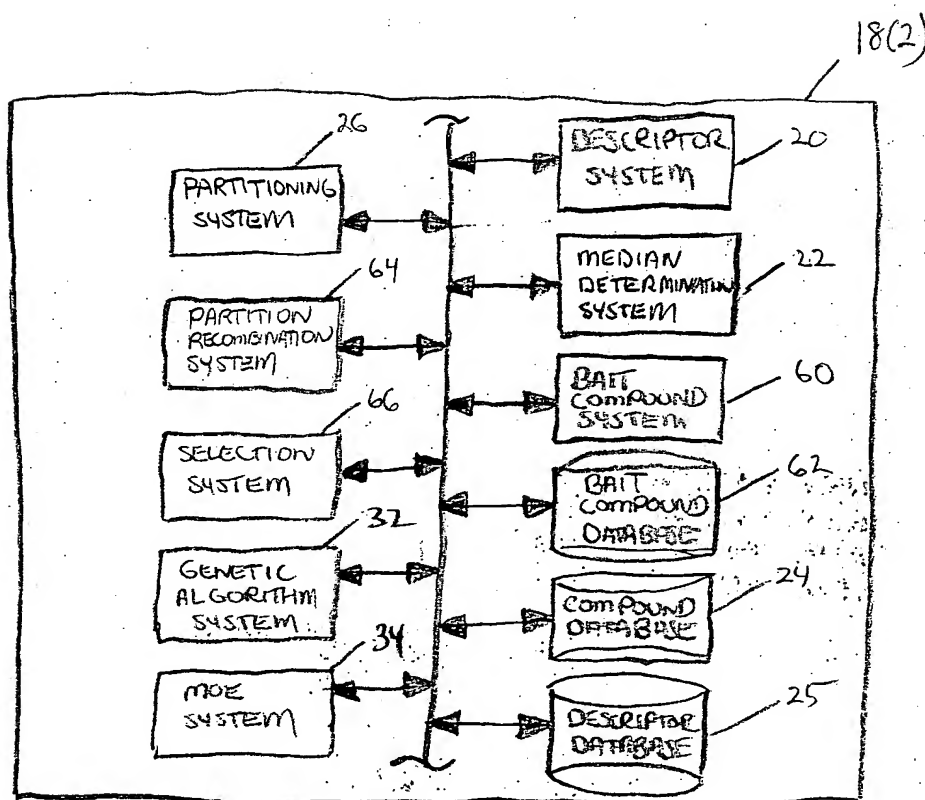 18(2)
26
PARTITIONING
SYSTEM
64
PARTITION
RECOMBINATION
SYSTEM
66
SELECTION
SYSTEM
32
GENETIC
ALGORITHM
SYSTEM
34
MOE
SYSTEM
DESCRIPTOR
SYSTEM
20
MEDIAN
DETERMINATION
SYSTEM
22
BAIT
COMPOUND
SYSTEM
60
BAIT
COMPOUND
DATABASE
62
COMPOUND
DATABASE
24
DESCRIPTOR
DATABASE
25